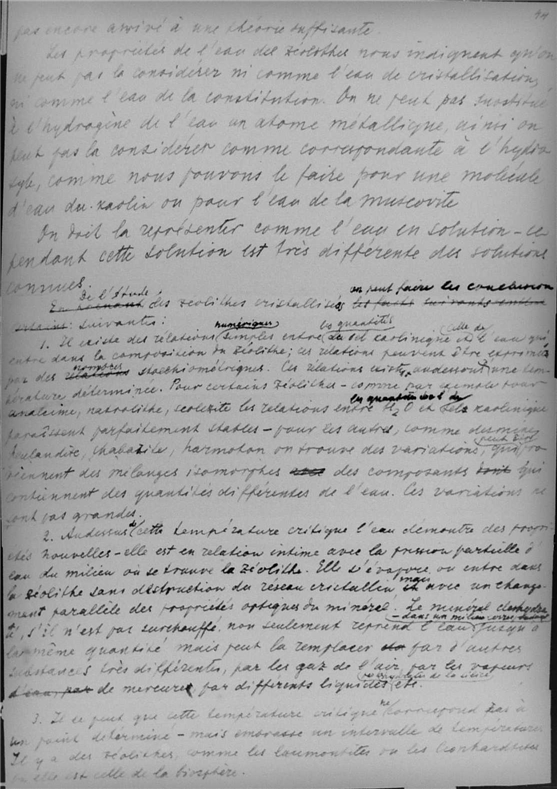 pas encore arrivé à une théorie suffisante.
Les propriétés de l'eau des zéolithes nous indiquent qu'on
ne peut pas la considérer ni comme l'eau de cristallisation,
ni comme l'eau de la constitution. On ne peut pas
à l'hydrogène de l'eau un atome métallique, on
peut pas la considérer comme correspondante à l'hydro
xyle, comme nous pouvons le faire pour une molécule
d'eau du kaolin ou pour l'eau de la muscovite
On doit la représenter comme l'eau en solution – ce
pendant cette solution est très différente des solutions
connues
De l'étude on peut faire les conclusion
des zéolithes cristallisés
suivantes:
numériques les quantités celle de
1. Il existe des relations simples entre du sel kaolinique et l'eau qui
entre dans la composition du zéolithe; ces relations peuvent être exprimées
nombres
par des stoechiométriques. Ces relations une tem
pérature déterminée. Pour certains zéolithes – comme par exemple pour
analcime, natrolithe, scolezite les relations entre H2O et kaolinique
paraissent parfaitement stables – pour les autres, comme desmine,
heulandite, chabazite, harmotom on trouve des variations, qui pro
viennent des mélanges isomorphes des composants qui
contiennent des quantités différentes de l'eau. Ces variations ne
sont pas grandes.
2. Audessus de cette température critique l'eau démontre des propri
etés nouvelles – elle est en relation intime avec la pression partielle d'
eau du milieu où se trouve la zéolithe. Elle s'évapore ou entre dans
mais
la zéolithe sans destruction du réseau cristallin avec un change
ment parallèle des propriétés optiques du minéral. Le minéral deshydra
té, s'il n'est pas surchauffé, non seulement reprend l'eau jusqu'à
la même quantité mais peut la remplacer par d'autres
substances très différentes, par les gaz de l'air, par les vapeurs
de mercure, par différents liquides etc.
3. Il se peut que cette température critique ne correspond pas à
un point determiné – mais embrasse un intervalle de températures
Il y a des zéolithes, comme les laumontites ou les leonhardites
où elle est celle de la biosphère.